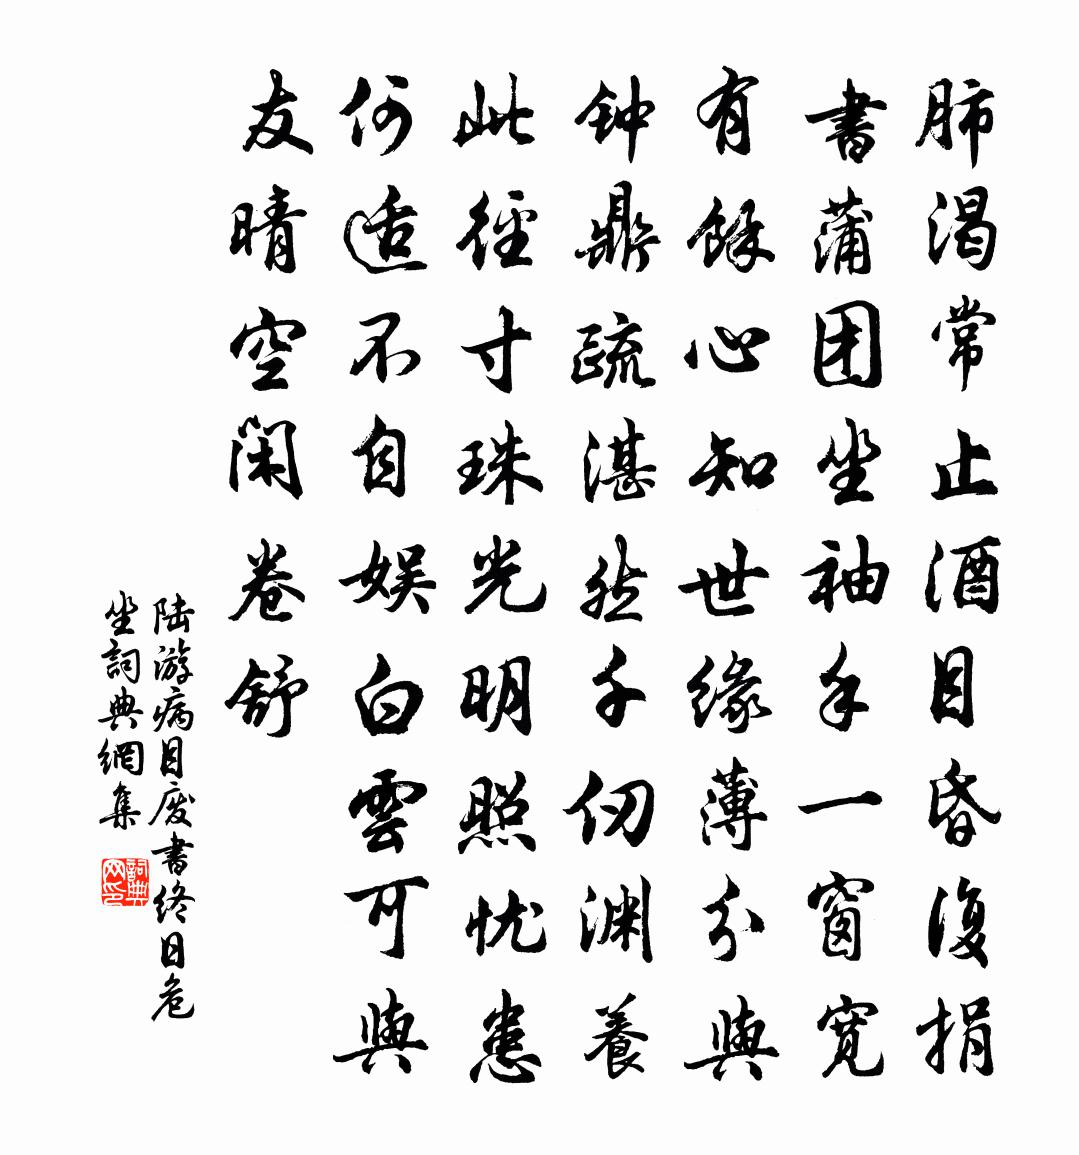 肺渴常止酒目昏復捐
書蒲团坐袖手一窗寬
有餘心知世缘薄分與
钟鼎疏湛然千仞渊養
此徑寸珠光明照忧患
何适不自娱白雲可與
友晴空闲卷舒
陆游病目废書终日危
坐詞典網集
詞典网印